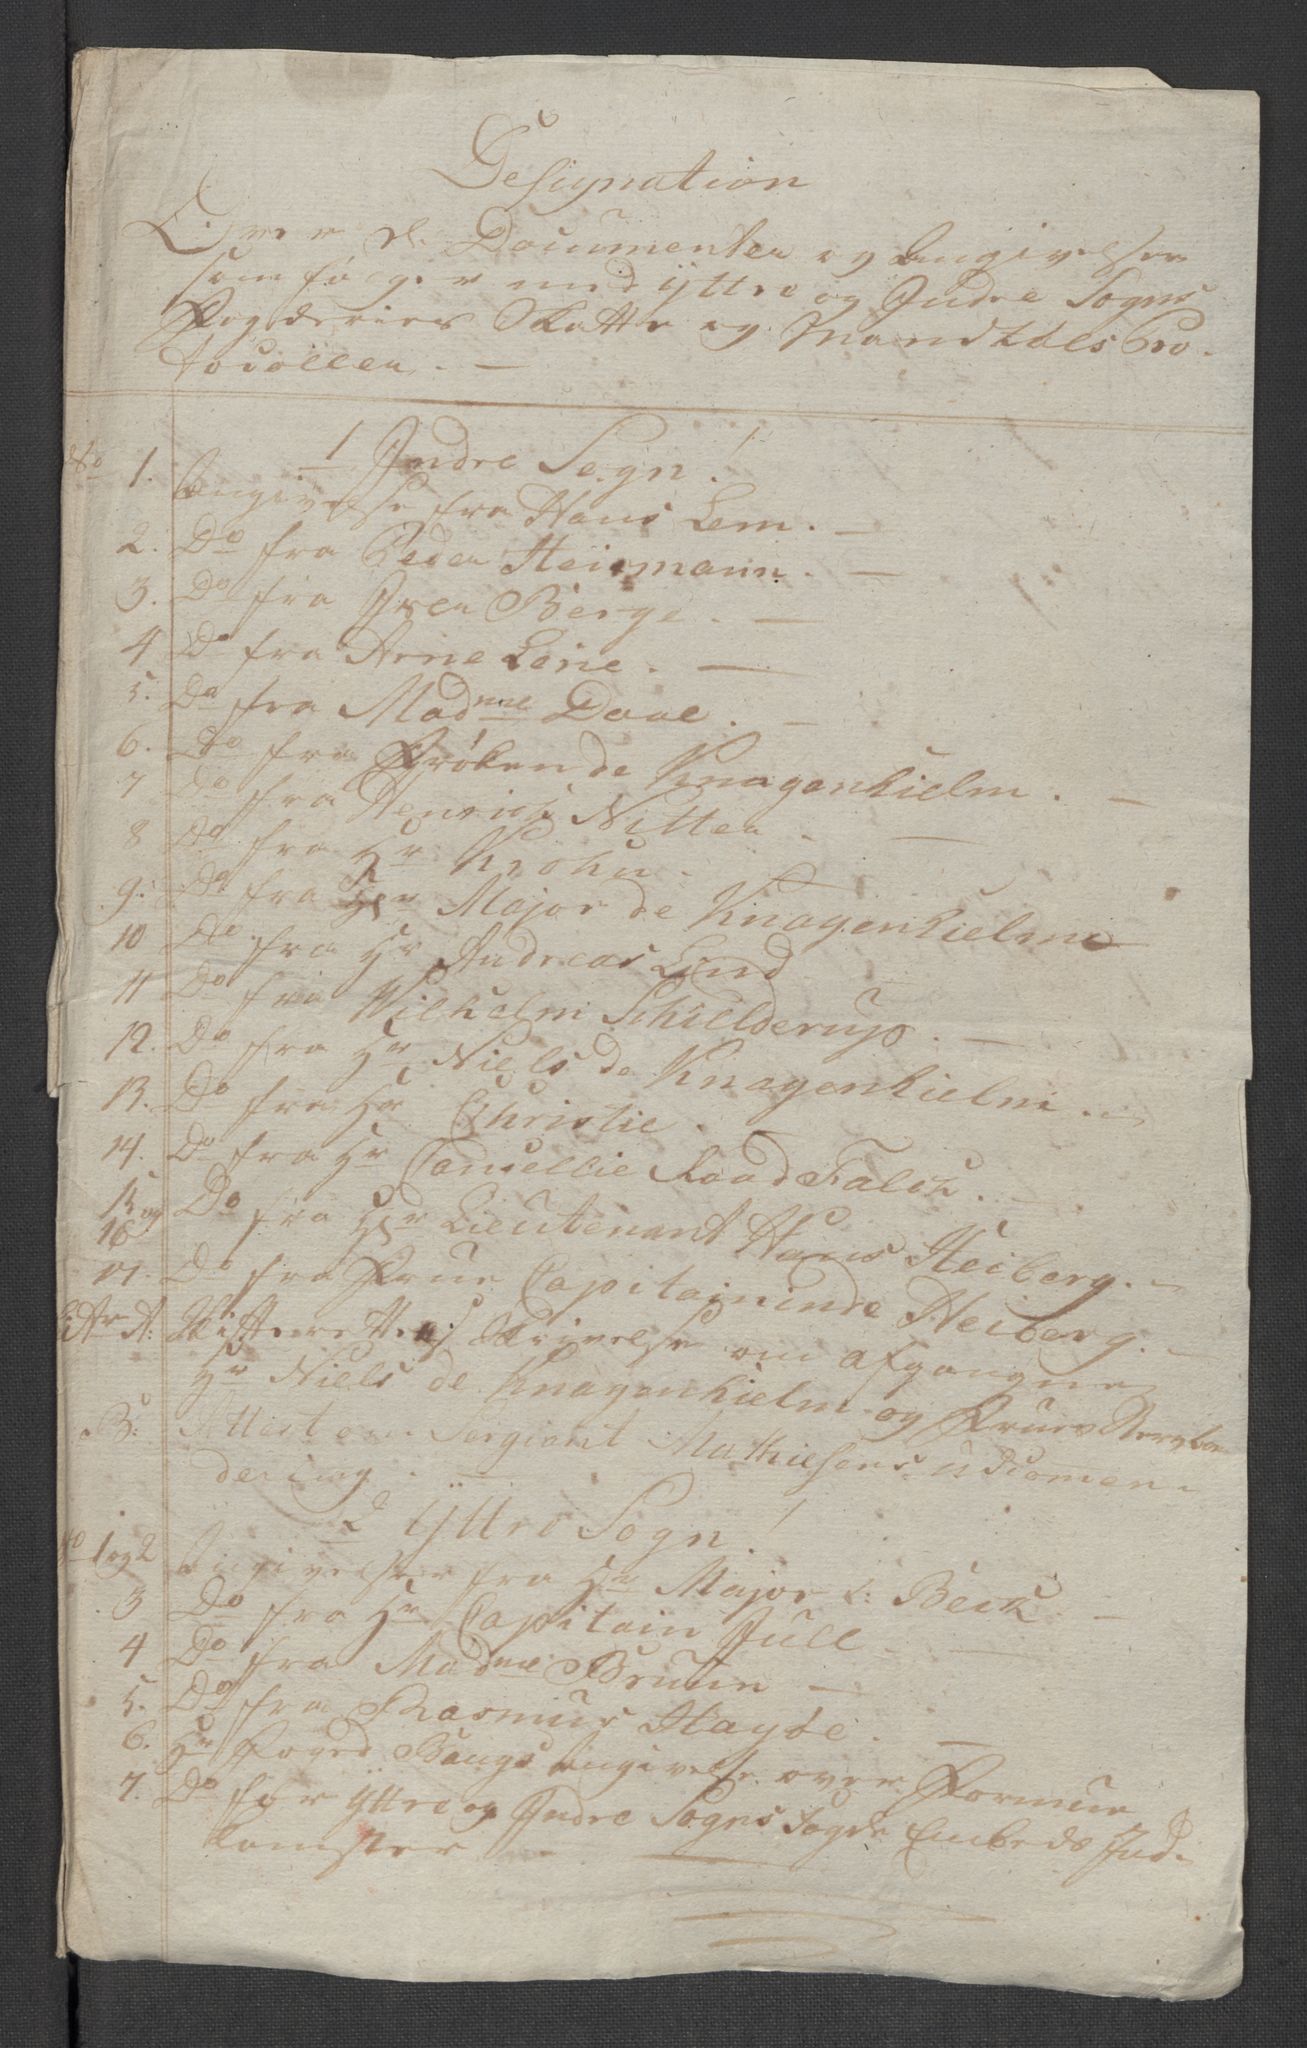 Designation
Over de Documenter og Angivelser
som følger med Yttre og Indre Sogns
Fogderies Skatte og Mandtals Pro-
tocoller. -
1 Indre Sogn!
No 1. Angivelse fra Hans Lem. -
2. Do fra Peder Heirmann. -
3. Do fra Iver Berge. -
4 Do fra Arne Lerie. -
5. Do fra Madme Daae. -
6. Do fra Frøken de Knagenhielm. -
7 Do fra Henrich Nitter. -
8 Do fra Hr Krohn.
9. Do fra Hr Major de Knagenhielm
10 Do fra Hr Andreas Lind
11 Do fra Vilhelm Schielderup. -
12. Do fra Hr Niels de Knagenhielm. -
13. Do fra Hr Christie.
14. Do fra Hr Cancellie Raad Falch. -
15 og
16 Do fra Hr Lieutenant Hans Heiberg. -
17. Do fra Frue Capitaininde Heiberg. -
Litr A: Skifterettens Skrivelse om afgangne
Hr Niels de Knagenhielm og Frues Stervboe
B: Attest om Sergiant Mathiesens Udcomen-
dering. -
2 Yttre Sogn!
No 1 og 2 Angivelser fra Hr Major L: Beck. -
3 Do fra Hr Capitain Juel -
4 Do fra Madme Bruun -
5. Do fra Rasmus Høyde. -
6. Hr Foged Bangs Angivelse over Formue
7. Do for Yttre og Indre Sogns Fogde Embeds Ind-
komster